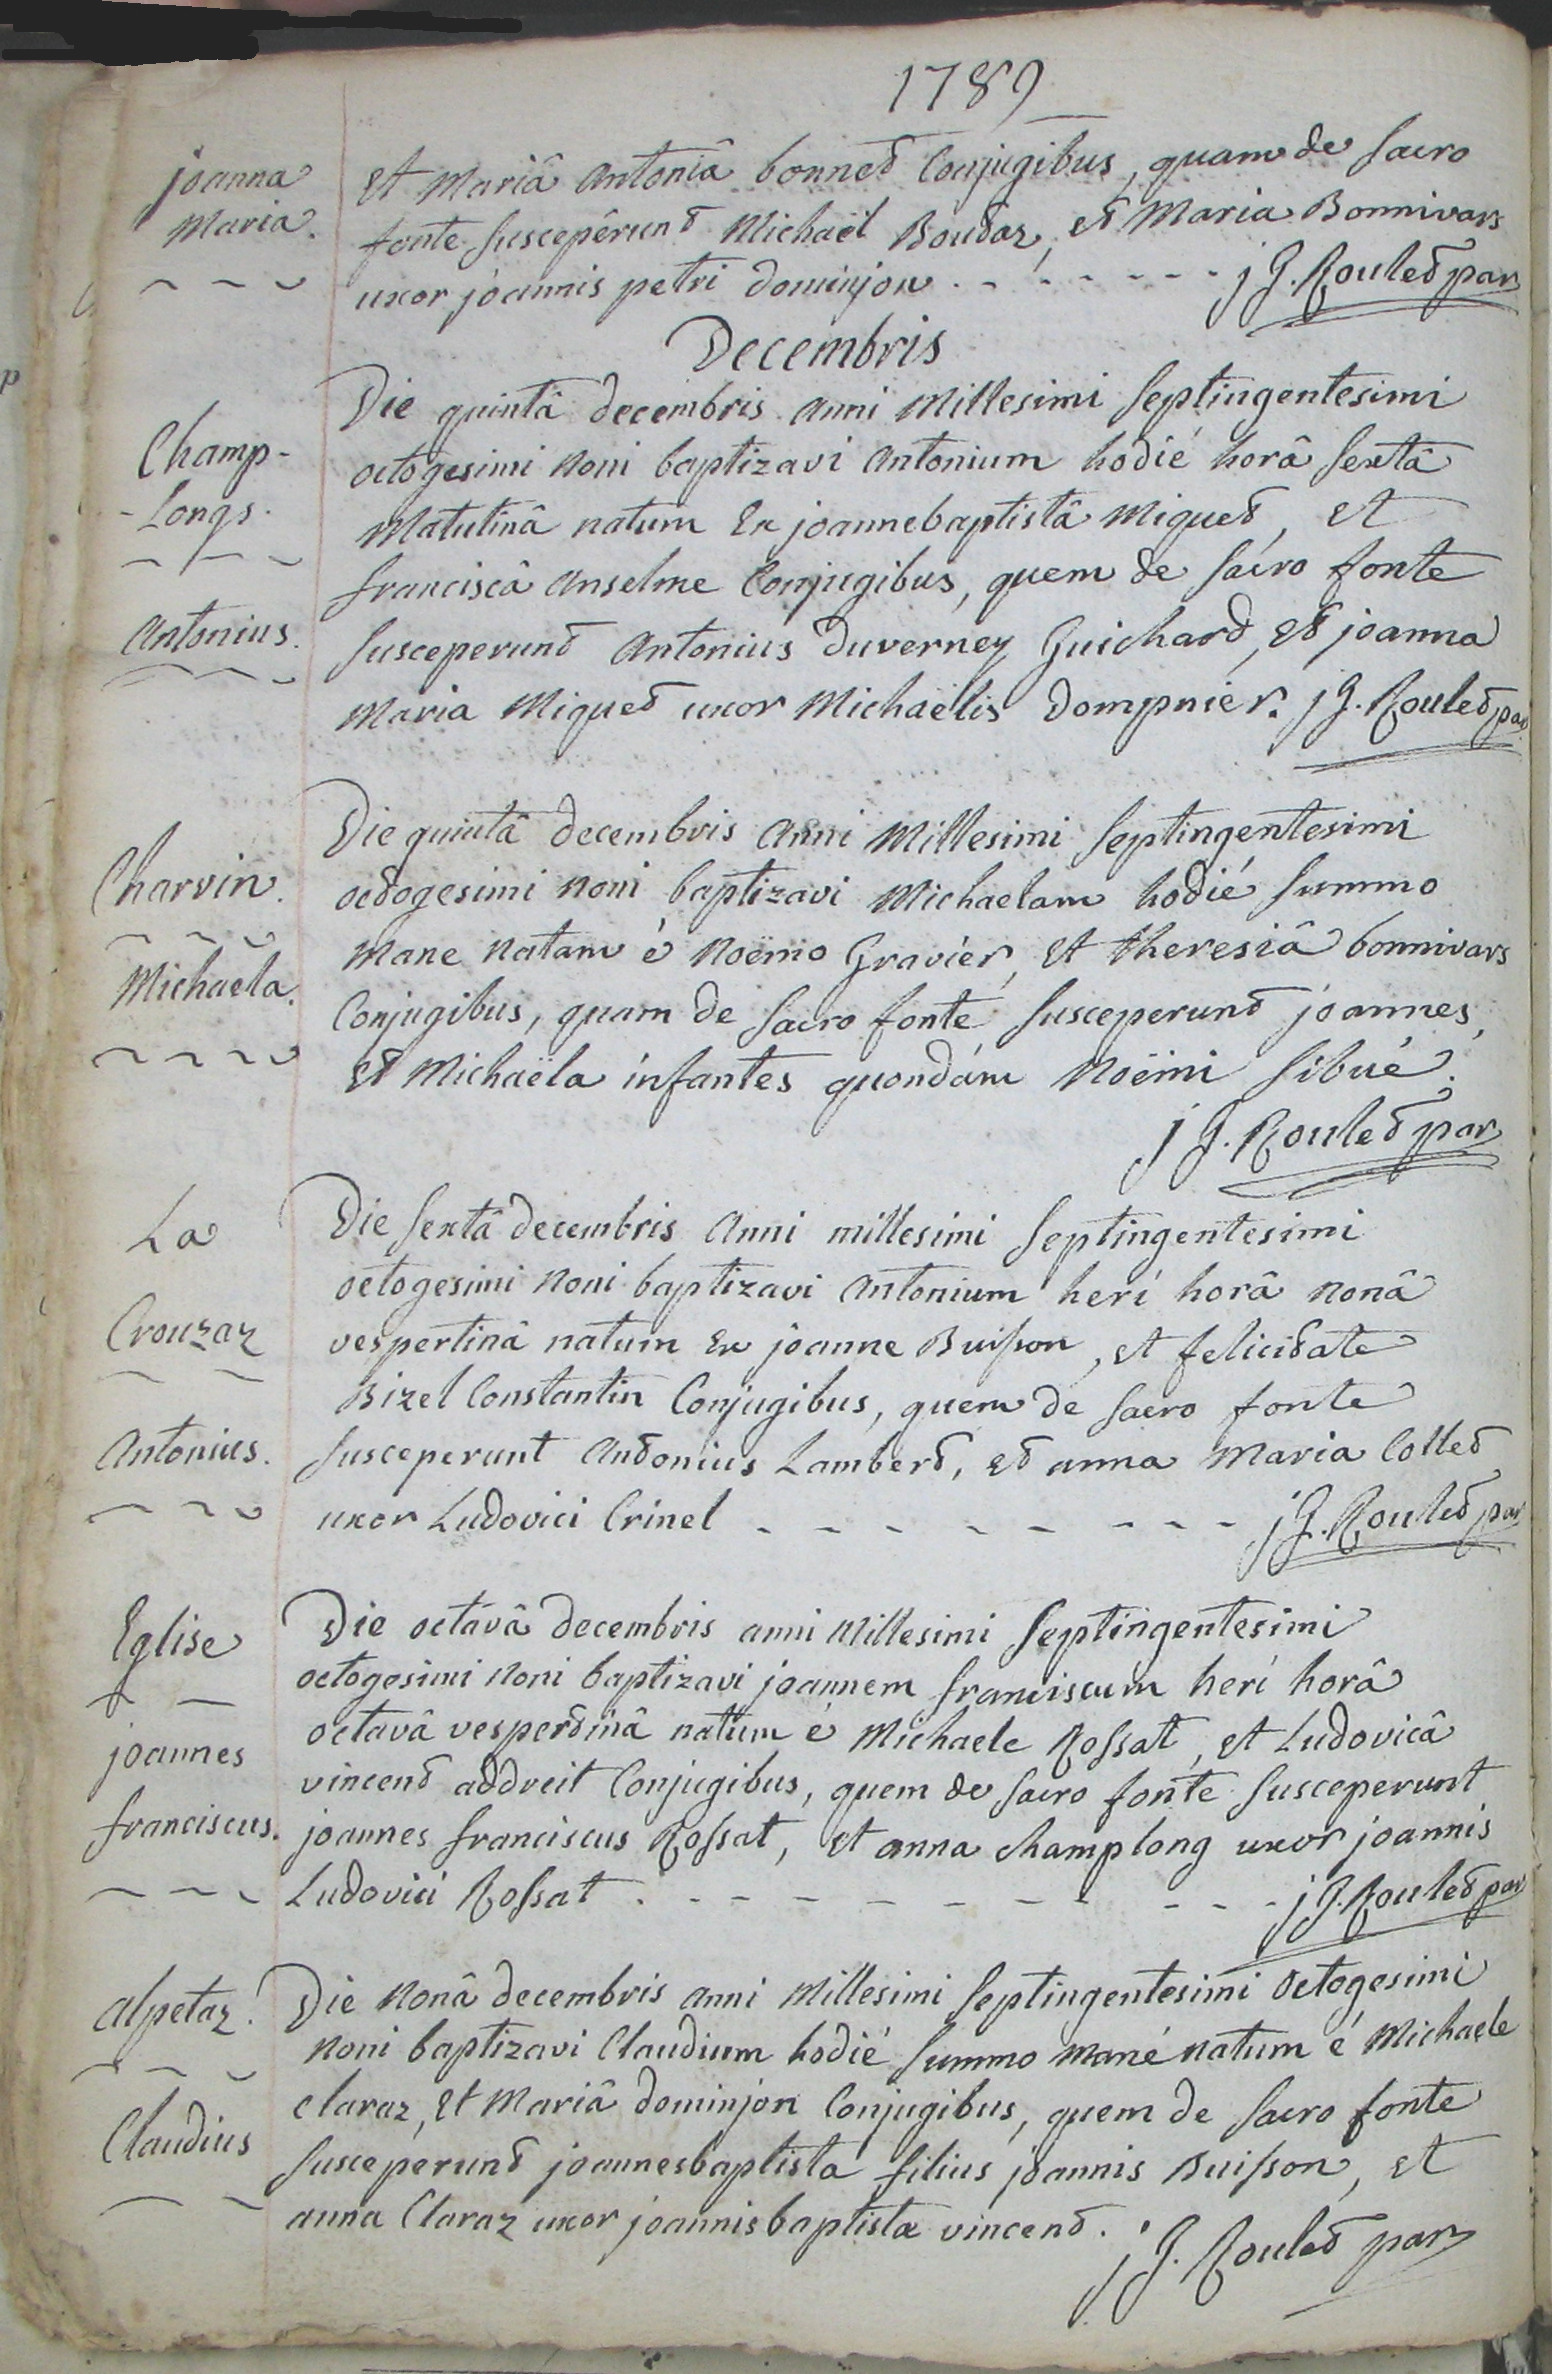 1789
joanna
Maria.
et Mariâ Antoniâ bonnet Conjugibus, quam de sacro
fonte susceperunt Michaël Boudaz, et Maria Bonnivars
uxor joannis petri dominjon. - - - - - - j G. Roulet par
Decembris
Champ-
-Longs.
Antonius.
Die quintâ decembris anni Millesimi septingentesimi
octogesimi noni baptizavi Antonium hodié horâ sextâ
Matutinâ natum Ex joannebaptistâ Miquet, et
franciscâ Anselme Conjugibus, quem de sacro fonte
susceperunt Antonius Duverney Guichard, et joanna
Maria Miquet uxor Michaëlis Dompnier. j G. Roulet par
Charvin.
Michaela.
Die quintâ decembris Anni Millesimi septingentesimi
octogesimi noni baptizavi Michaelam hodié summo
mane natam é Noëmo Gravier, et theresiâ bonnivars
Conjugibus, quam de sacro fonte susceperunt joannes,
et Michaëla infantes quondám Noëmi sibué.
j G. Roulet par
La
Crouzaz
Antonius.
Die sextâ decembris Anni millesimi septingentesimi
octogesimi noni baptizavi Antonium heri horâ nonâ
vespertinâ natum Ex joanne Buisson, et felicitate
Bizel Constantin Conjugibus, quem de sacro fonte
susceperunt Antonius Lambert, et anna Maria Collet
uxor Ludovici Crinel - - - - - - - - j G. Roulet par
Eglise
joannes
franciscus.
Die octavâ decembris anni Millesimi septingentesimi
octogesimi noni baptizavi joannem franciscum heri horâ
octavâ vespertinâ natum é Michaele Rossat, et Ludovicâ
vincent addreit Conjugibus, quem de sacro fonte susceperunt
joannes franciscus Rossat, et anna champlong uxor joannis
Ludovici Rossat. - - - - - - - - - - j G. Roulet par
alpetaz.
Claudius
Die nonâ decembris anni Millesimi septingentesimi octogesimi
noni baptizavi Claudium hodié summo mané natum é Michaele
claraz, et Mariâ dominjon Conjugibus, quem de sacro fonte
susceperunt joannesbaptista filius joannis Buisson, et
anna Claraz uxor joannisbaptistæ vincent. j G. Roulet par